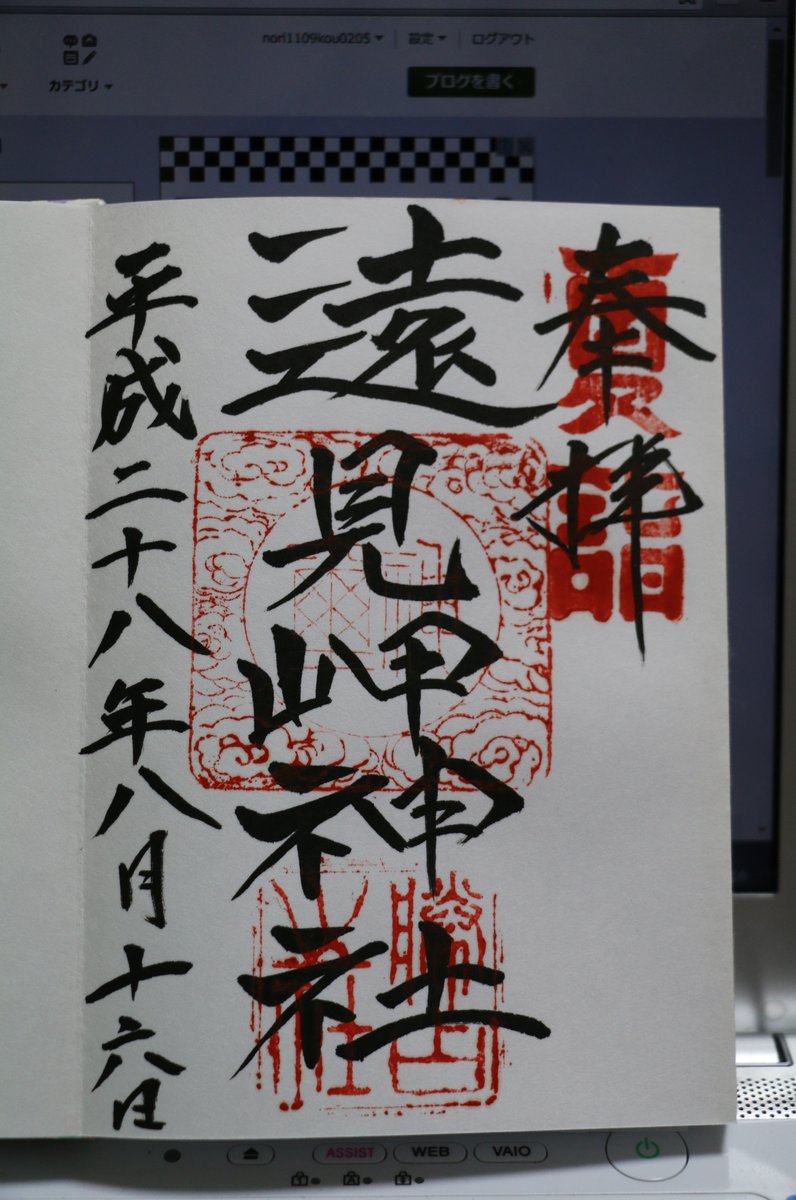 nori1109kou0205 設定 ログアウト
カテゴリ
ブログを書く
奉拝
遠見岬神社
平成二十八年八月十六日
ASSIST WEB VAIO